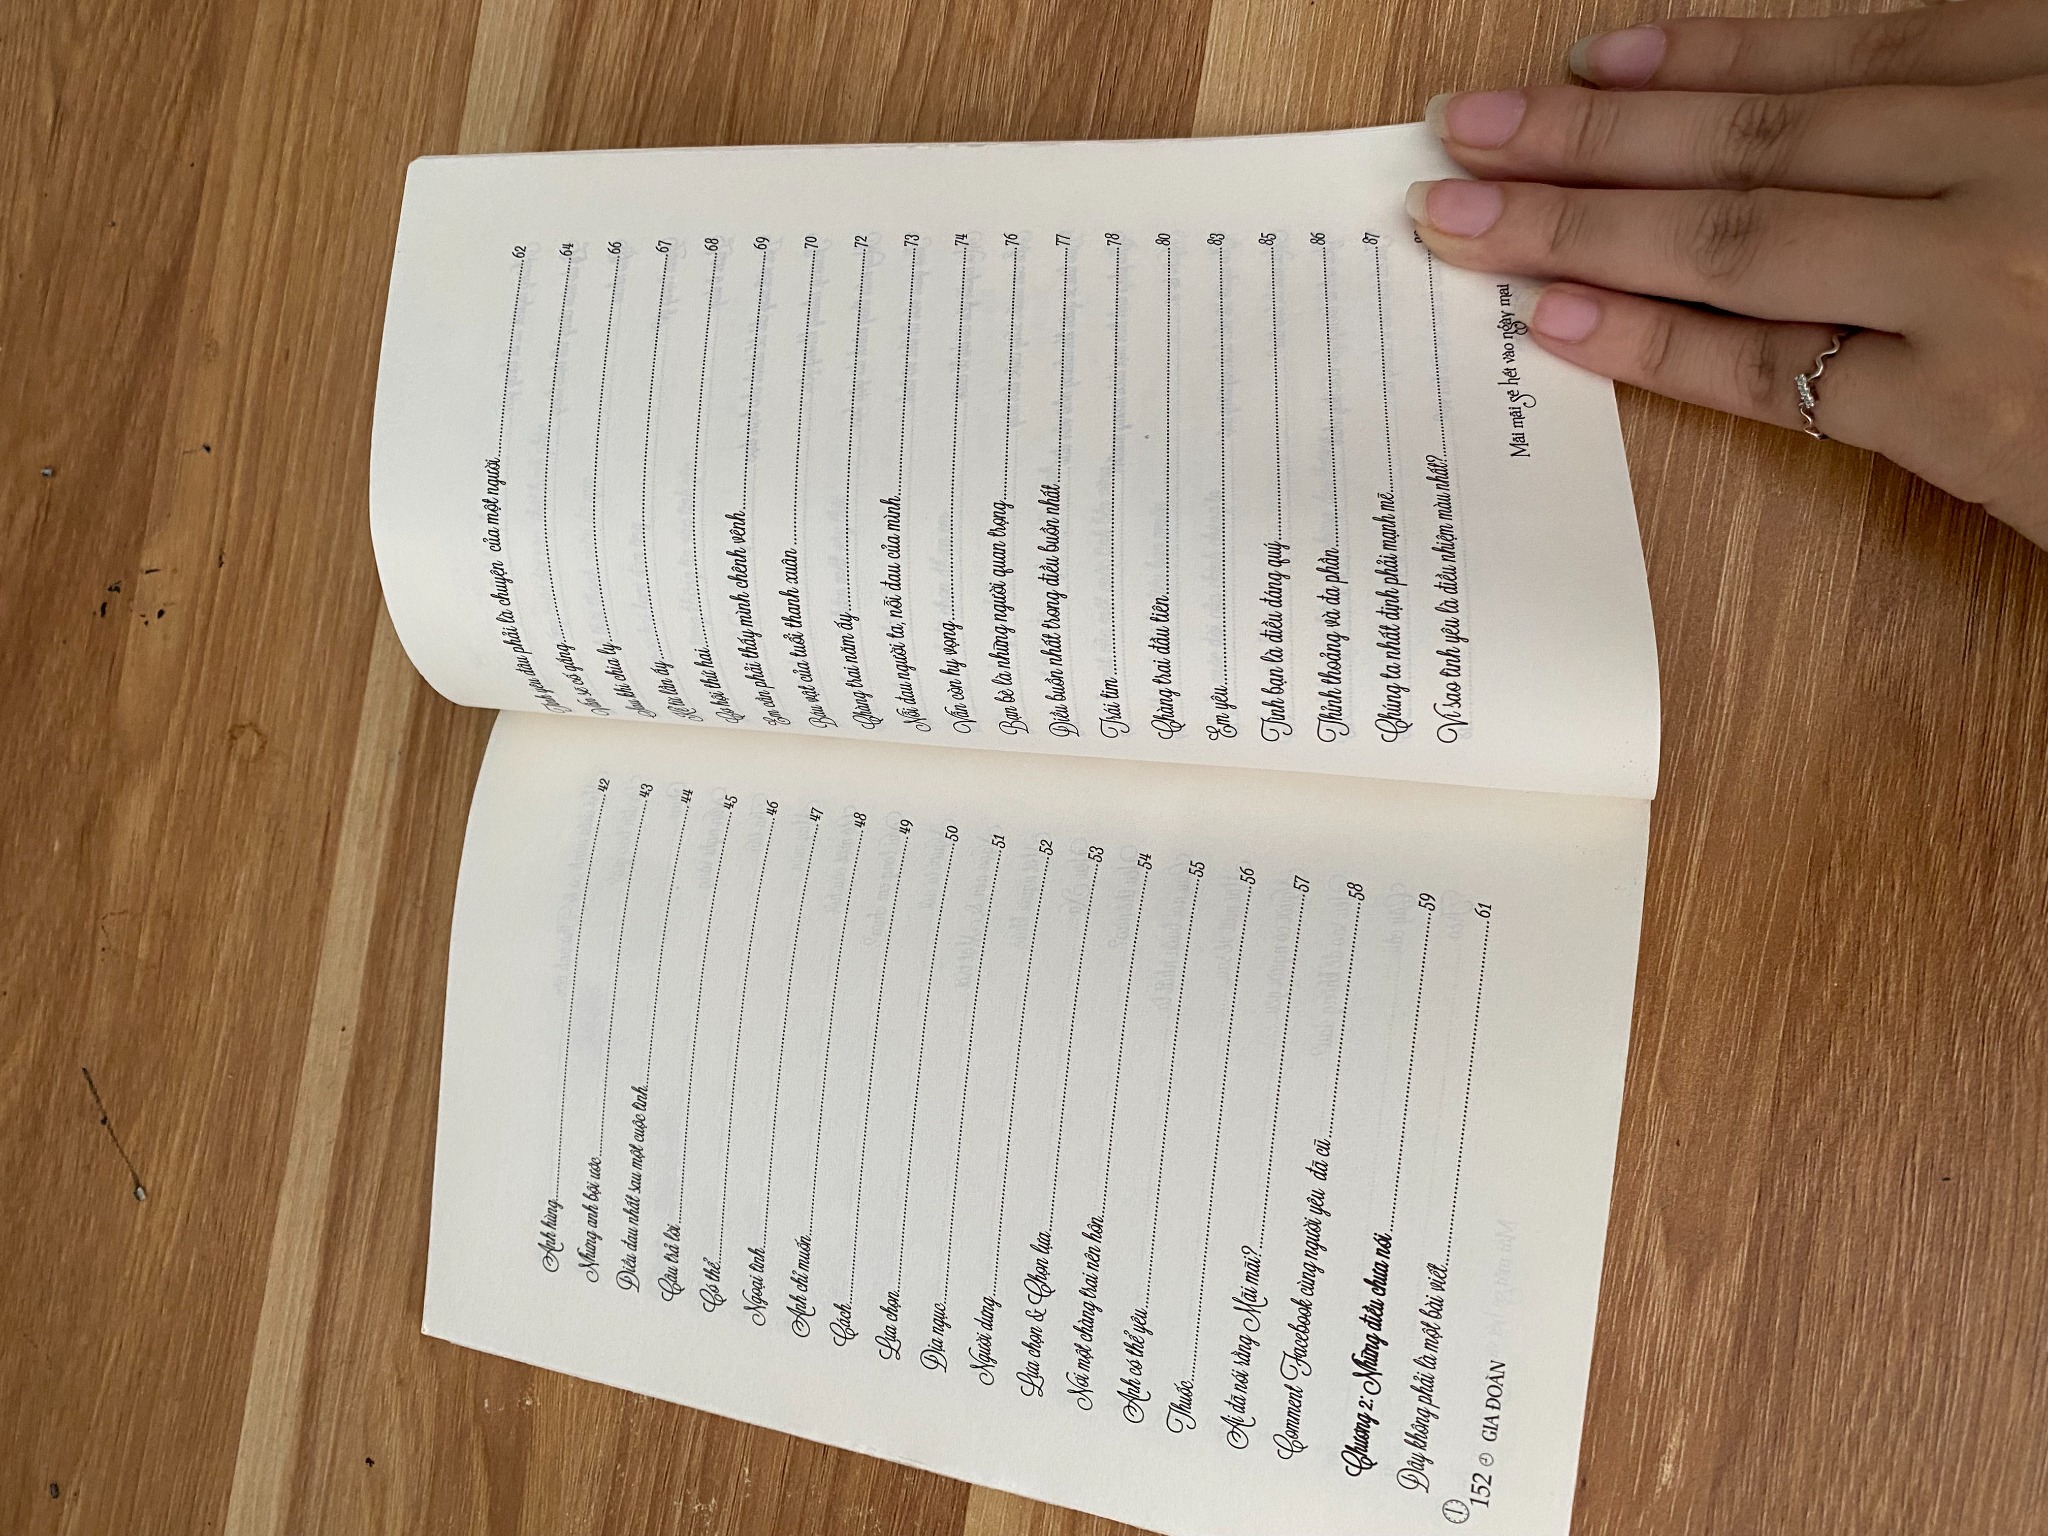 Anh hùng....................42
Nhưng anh bội ước....................43
Điều đau nhất sau một cuộc tình....................44
Câu trả lời....................45
Có thể....................46
Ngoại tình....................47
Anh chỉ muốn....................48
Cách....................49
Lựa chọn....................50
Địa ngục....................51
Người dưng....................52
Lựa chọn & Chọn lựa....................53
Nơi một chàng trai nên hôn....................54
Anh có thể yêu....................55
Thuốc....................56
Ai đã nói rằng Mãi mãi?....................57
Comment Facebook cùng người yêu đã cũ....................58
Chương 2: Những điều chưa nói....................59
Đây không phải là một bài viết....................61
152 GIA ĐOÀN
Tình yêu đâu phải là chuyện của một người....................62
sẽ cố gắng....................64
khi chia ly....................66
lần ấy....................67
Cơ hội thứ hai....................68
Em cần phải thấy mình chênh vênh....................69
Báu vật của tuổi thanh xuân....................70
Chàng trai năm ấy....................72
Nỗi đau người ta, nỗi đau của mình....................73
Vẫn còn hy vọng....................74
Bạn bè là những người quan trọng....................76
Điều buồn nhất trong điều buồn nhất....................77
Trái tim....................78
Chàng trai đầu tiên....................80
Em yêu....................83
Tình bạn là điều đáng quý....................85
Thỉnh thoảng và đa phần....................86
Chúng ta nhất định phải mạnh mẽ....................87
Vì sao tình yêu là điều nhiệm màu nhất?....................
Mãi mãi sẽ hết vào ngày mai